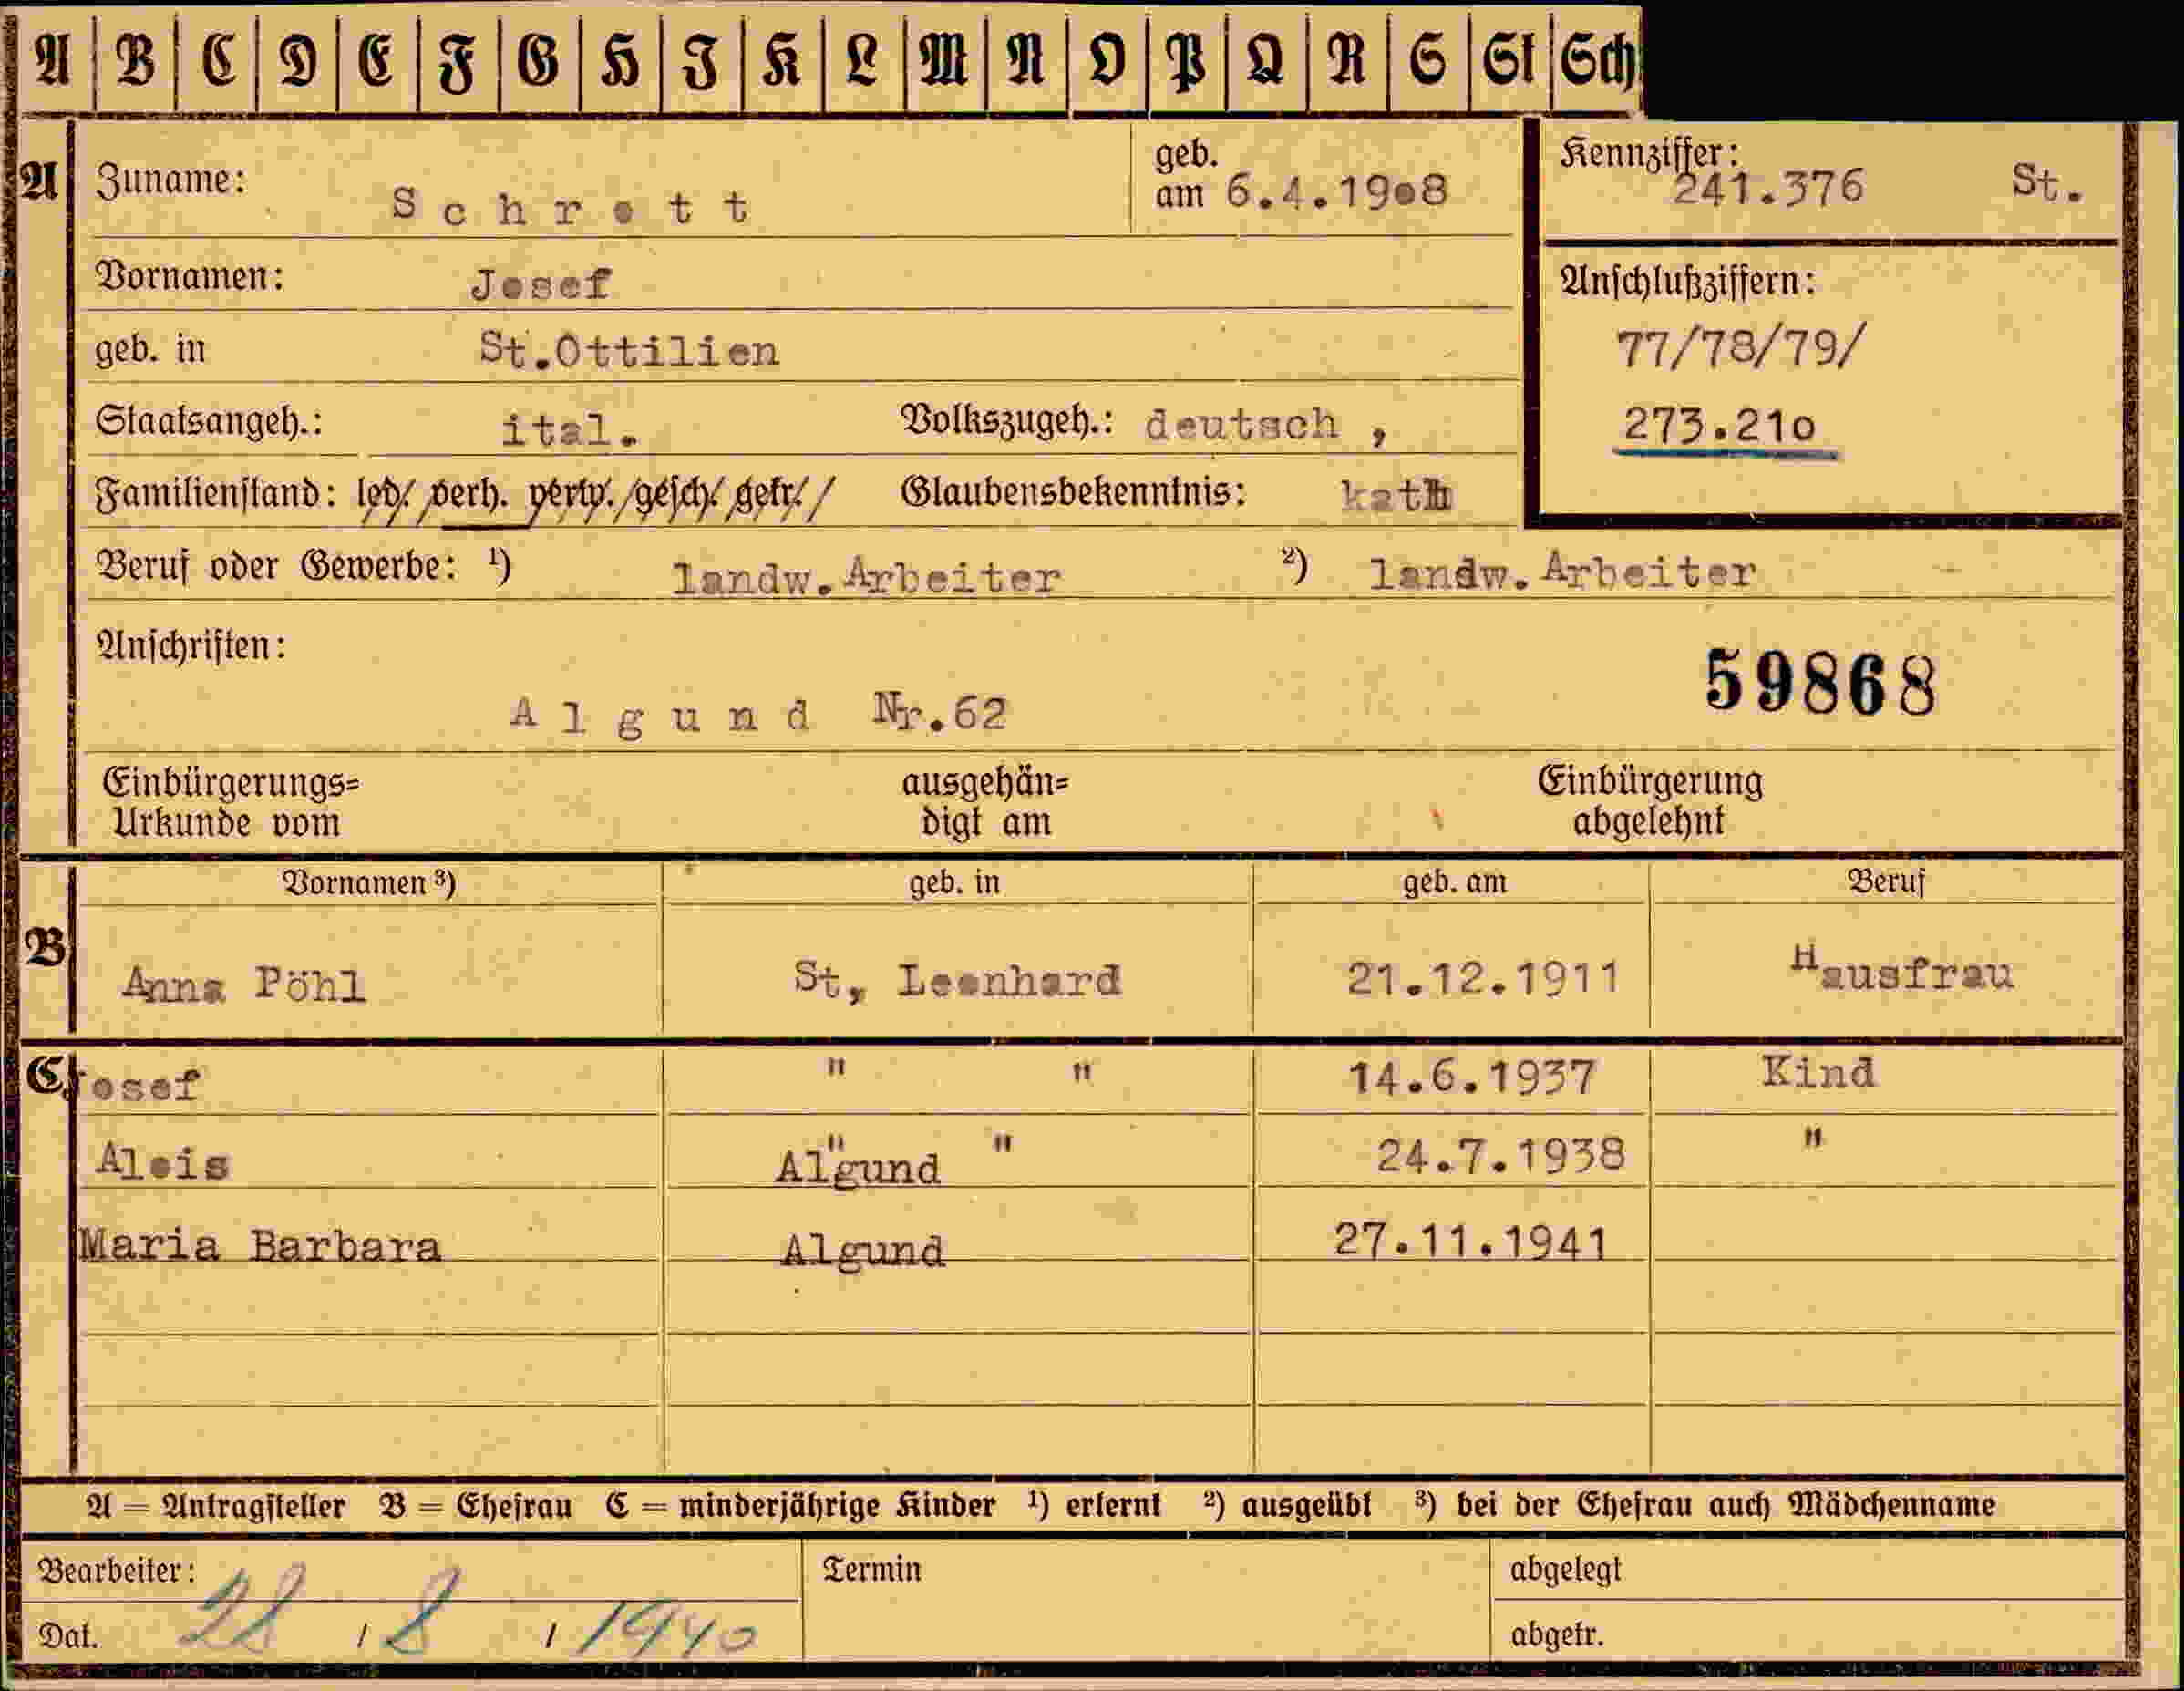 A B C D E F G H I K L M N O P Q R S St Sch
A Zuname: Schrott geb. am 6.4.1908 Kennziffer: 241.376 St.
Vornamen: Josef Anschlußziffern:
geb. in St.Ottilien 77/78/79/
Staatsangeh.: ital. Volkszugeh.: deutsch , 273.210
Familienstand: led. verh. verw. gesch. getr. Glaubensbekenntnis: kath
Beruf oder Gewerbe: ¹) landw.Arbeiter ²) landw.Arbeiter
Anschriften: 59868
Algund Nr.62
Einbürgerungs= ausgehän= Einbürgerung
Urkunde vom digt am abgelehnt
Vornamen ³) geb. in geb. am Beruf
B Anna Pöhl St, Leonhard 21.12.1911 Hausfrau
C Josef " " 14.6.1937 Kind
Alois Algund " " 24.7.1938 "
Maria Barbara Algund 27.11.1941
A = Antragsteller B = Ehefrau C = minderjährige Kinder ¹) erlernt ²) ausgeübt ³) bei der Ehefrau auch Mädchenname
Bearbeiter: Termin abgelegt
Dat. 28 / 8 / 1940 abgetr.